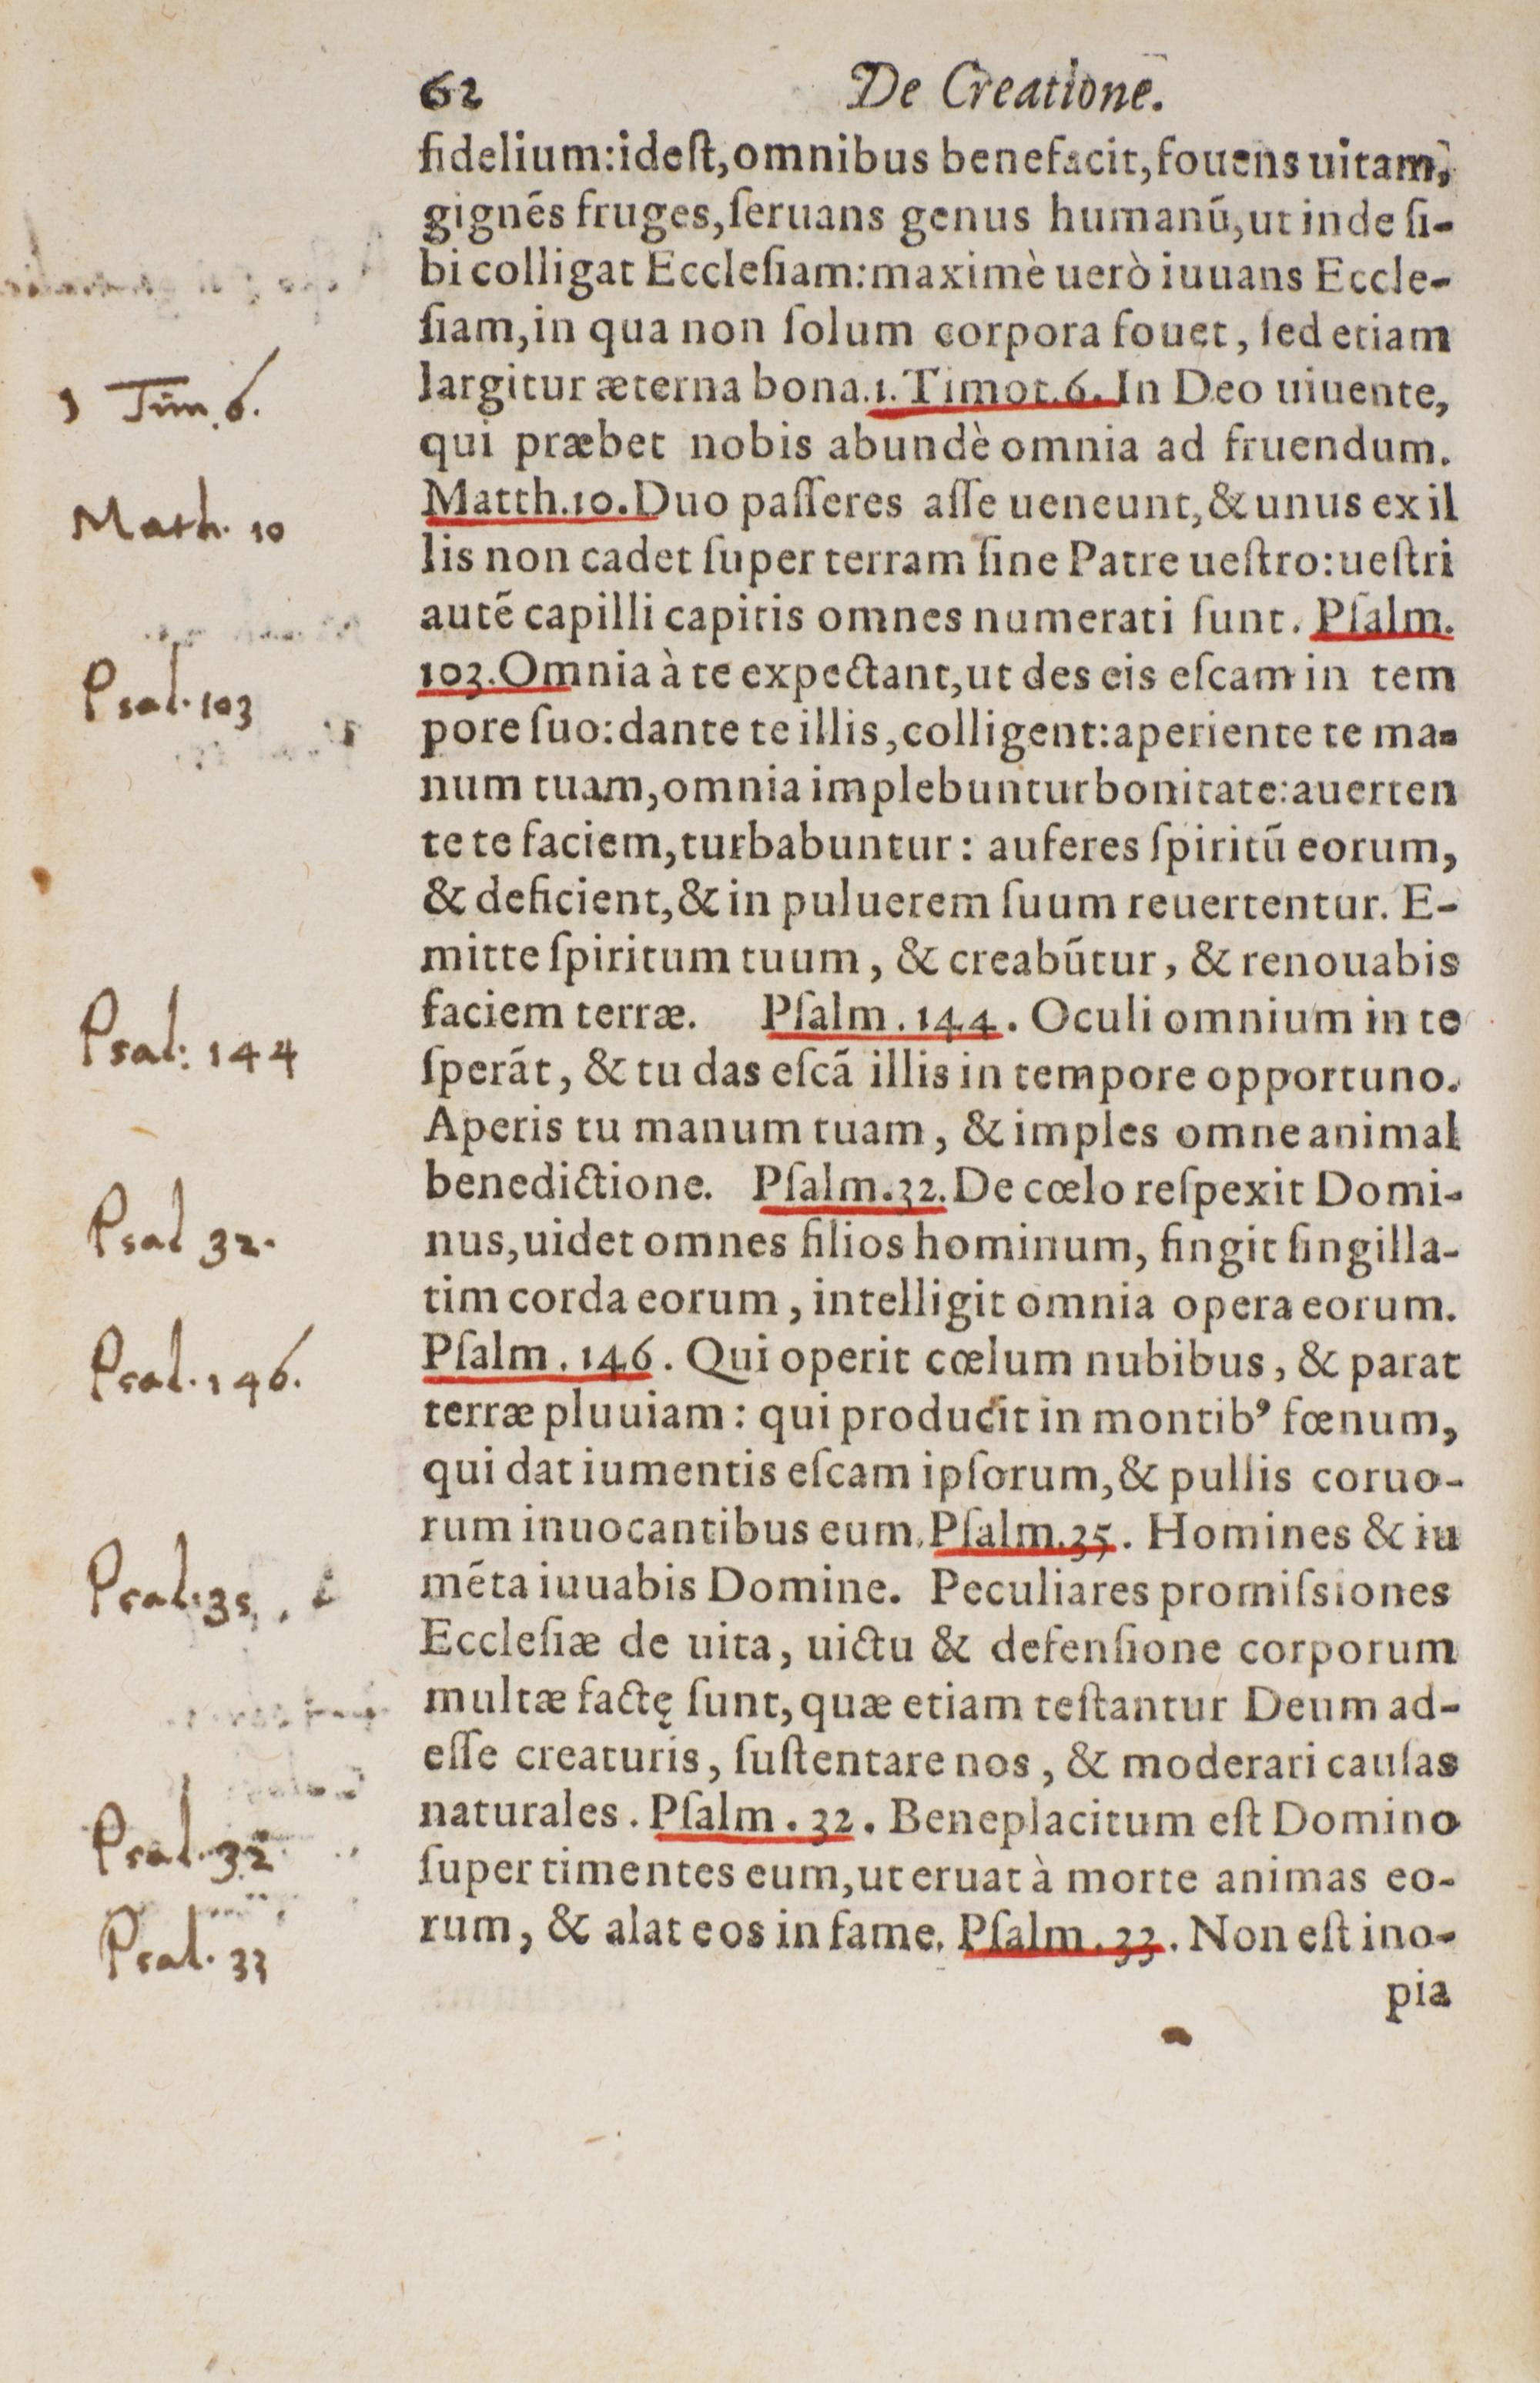 62 De Creatione.
fidelium:idest,omnibus benefacit,fouens uitam,
gignẽs fruges,ſeruans genus humanũ,ut inde ſi-
bi colligat Eccleſiam:maximè uerò iuuans Eccle-
ſiam,in qua non ſolum corpora fouet, ſed etiam
largitur æterna bona.1. Timot.6. In Deo uiuente,
1 Tim 6.
qui præbet nobis abundè omnia ad fruendum.
Matth.10. Duo paſſeres aſſe ueneunt,& unus ex il
Math. 10
lis non cadet ſuper terram ſine Patre ueſtro:ueſtri
autẽ capilli capitis omnes numerati ſunt. Pſalm.
103. Omnia à te expectant,ut des eis eſcam in tem
Psal. 103
pore ſuo:dante te illis,colligent:aperiente te ma-
num tuam,omnia implebuntur bonitate:auerten
te te faciem,turbabuntur: auferes ſpiritũ eorum,
& deficient,& in puluerem ſuum reuertentur. E-
mitte ſpiritum tuum, & creabũtur, & renouabis
faciem terræ. Pſalm. 144. Oculi omnium in te
Psal: 144
ſperãt, & tu das eſcã illis in tempore opportuno.
Aperis tu manum tuam, & imples omne animal
benedictione. Pſalm.32. De cœlo reſpexit Domi-
Psal 32.
nus,uidet omnes filios hominum, fingit ſingilla-
tim corda eorum, intelligit omnia opera eorum.
Pſalm. 146. Qui operit cœlum nubibus, & parat
Psal. 146.
terræ pluuiam: qui producit in montibꝰ fœnum,
qui dat iumentis eſcam ipſorum,& pullis coruo-
rum inuocantibus eum. Pſalm.35. Homines & iu
mẽta iuuabis Domine. Peculiares promiſsiones
Psal: 35
Eccleſiæ de uita, uictu & defenſione corporum
multæ factę ſunt,quæ etiam teſtantur Deum ad-
eſſe creaturis, ſuſtentare nos, & moderari cauſas
naturales. Pſalm. 32. Beneplacitum eſt Domino
Psal. 32
ſuper timentes eum,ut eruat à morte animas eo-
rum, & alat eos in fame. Pſalm. 33. Non eſt ino-
Psal. 33
pia